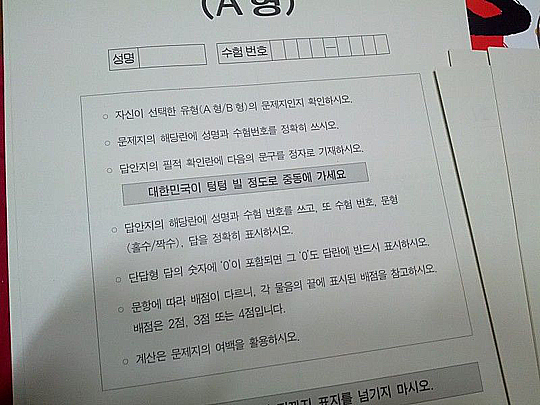 (A 형)
성명
수험 번호 –
○ 자신이 선택한 유형(A 형/B 형)의 문제지인지 확인하시오.
○ 문제지의 해당란에 성명과 수험번호를 정확히 쓰시오.
○ 답안지의 필적 확인란에 다음의 문구를 정자로 기재하시오.
대한민국이 텅텅 빌 정도로 중동에 가세요
○ 답안지의 해당란에 성명과 수험 번호를 쓰고, 또 수험 번호, 문형
(홀수/짝수), 답을 정확히 표시하시오.
○ 단답형 답의 숫자에 '0'이 포함되면 그 '0'도 답란에 반드시 표시하시오.
○ 문항에 따라 배점이 다르니, 각 물음의 끝에 표시된 배점을 참고하시오.
배점은 2점, 3점 또는 4점입니다.
○ 계산은 문제지의 여백을 활용하시오.
표지를 넘기지 마시오.